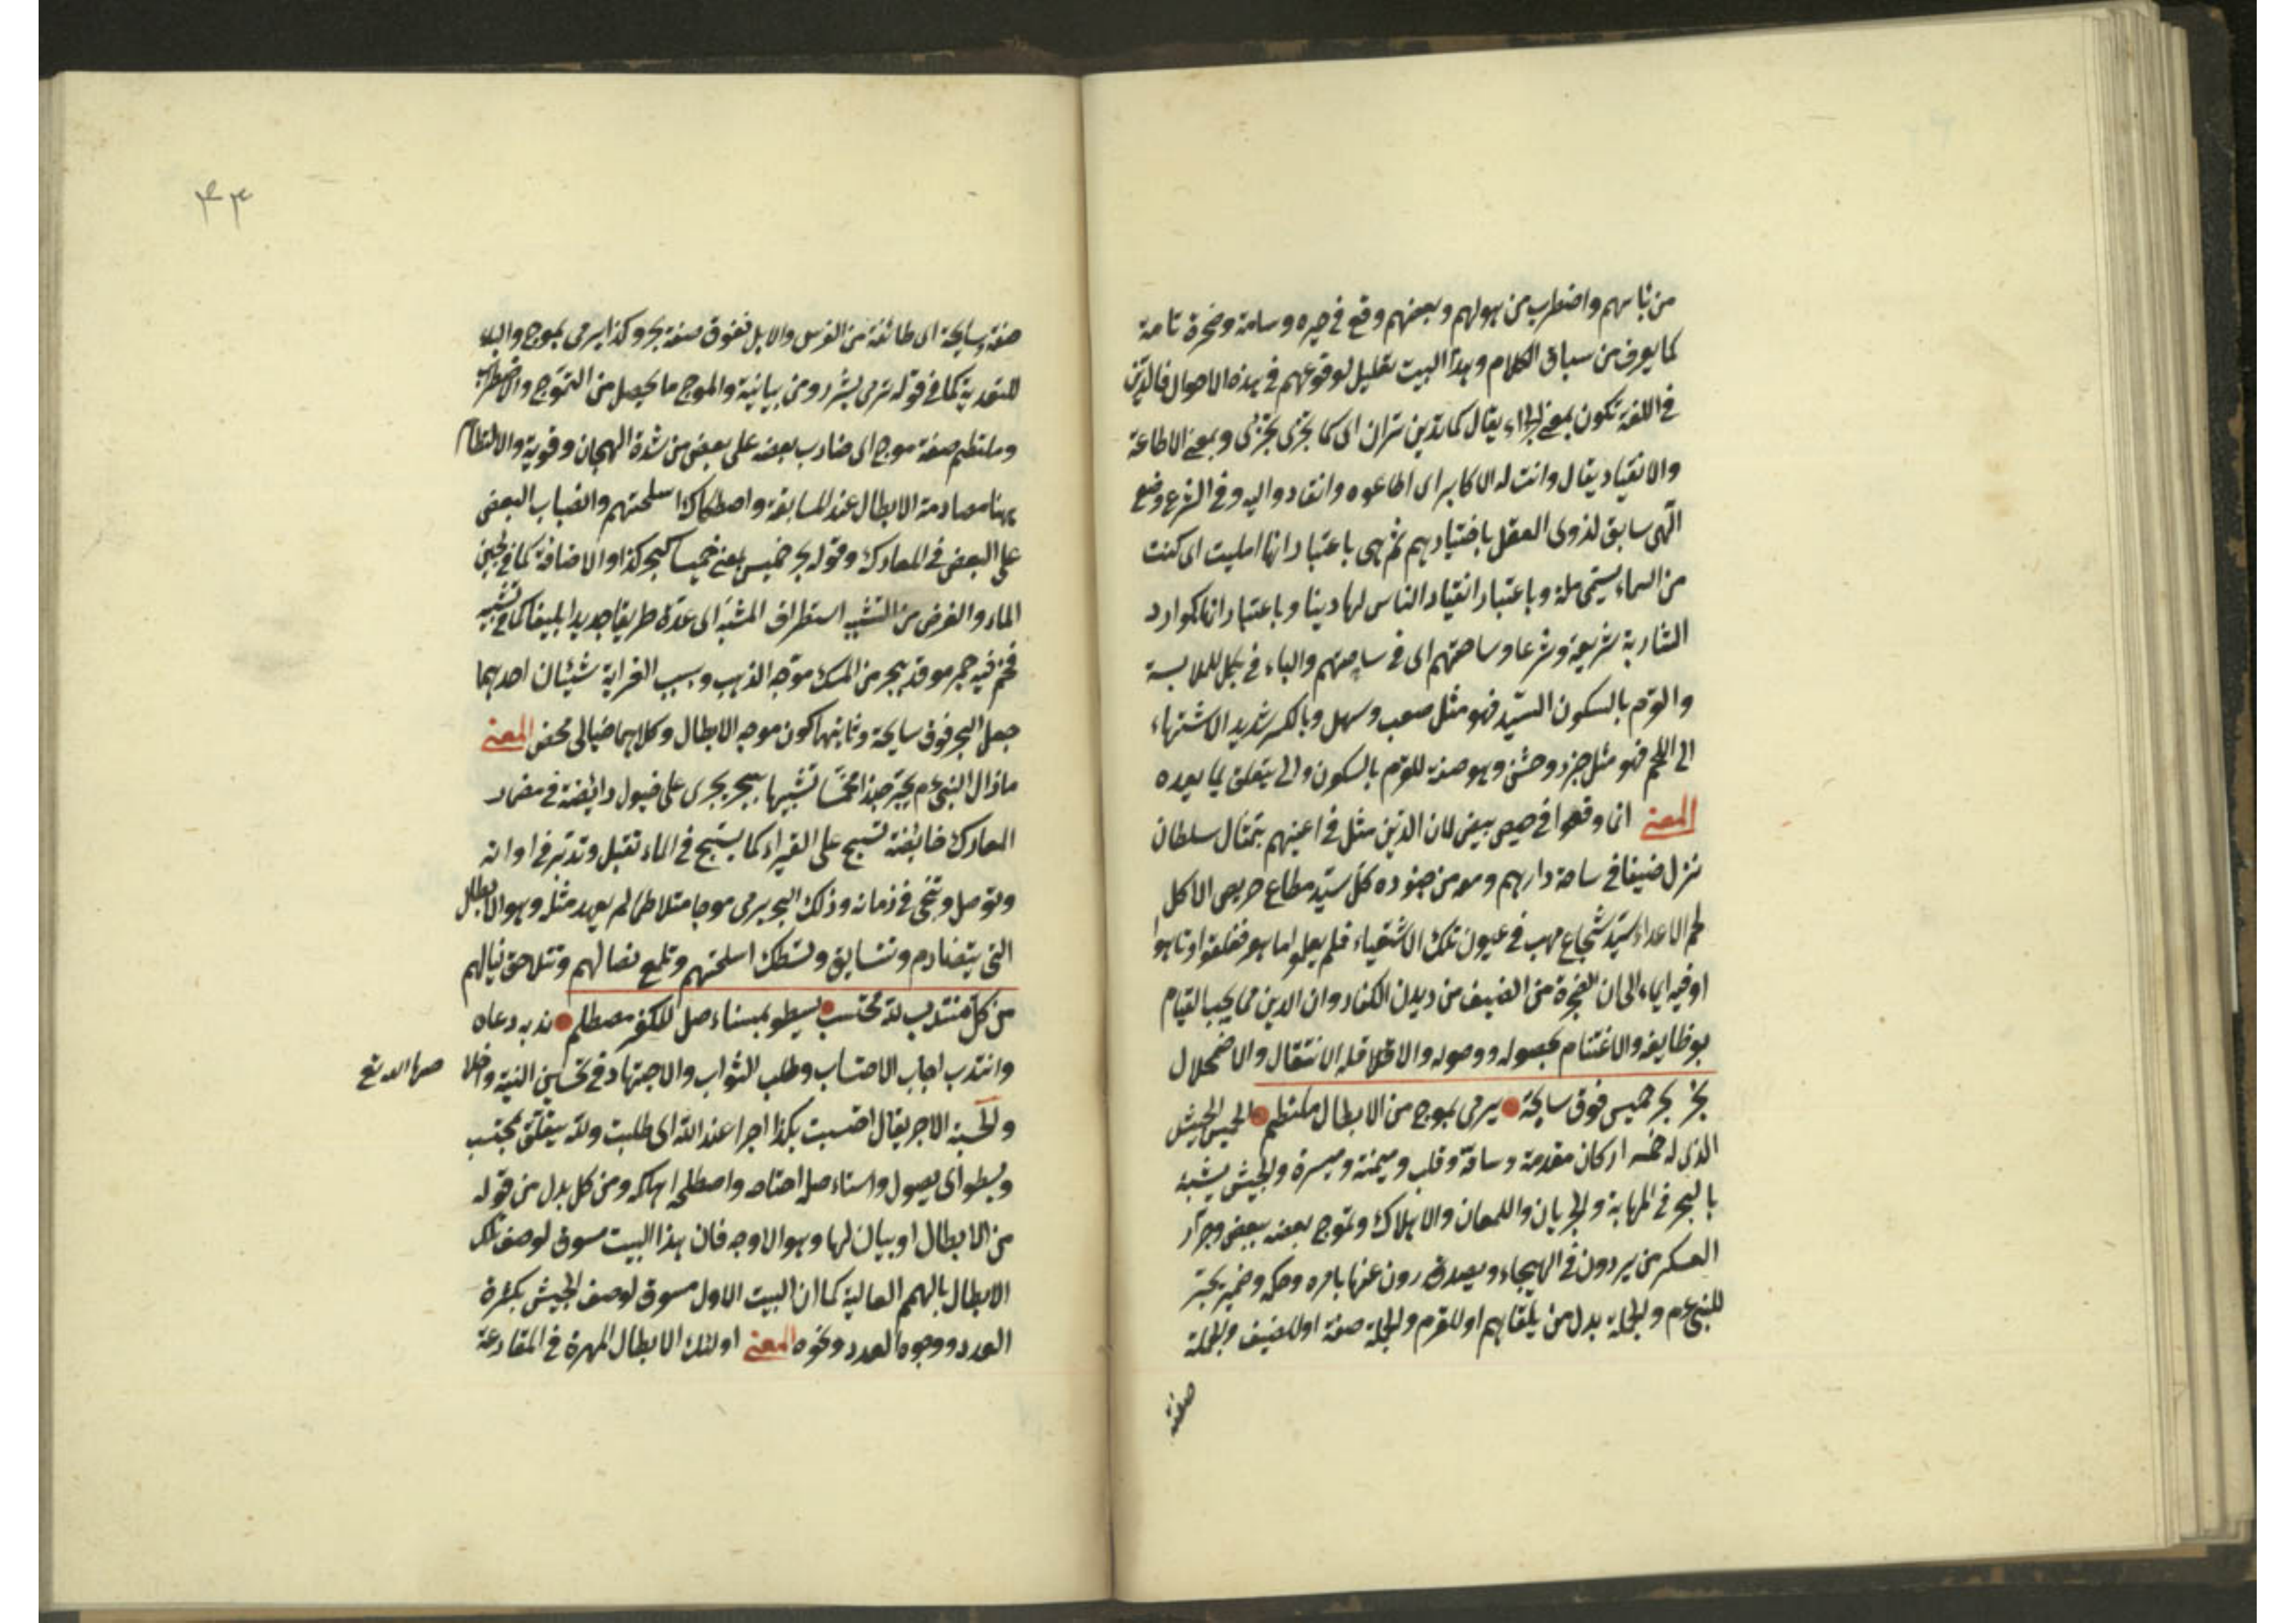 من بأسهم واضطرب من هولهم وبعضهم وقع في حيره وسامة وضجرة تامة
كما يعرف من سباق الكلام وهذا البيت تعليل لوقوعهم في هذه الاحوال فالدين
في اللغة تكون بمعنى الجزاء يقال كما تدين تدان اى كما تجزى تجزى وبمعنى الاطاعة
والانقياد يقال دانت له الاكابر اى اطاعوه وانقادوا اليه وفي الشرع وضع
الهى سابق لذوى العقل باختيارهم ثم هى باعتبار انها امليت اى كتبت
من السماء يسمى ملة وباعتبار انقياد الناس لها دينا وباعتبار انها كموارد
الشاربة شريعة وشرعا وساحتهم اى في ساحتهم والباء في بكل للملابسة
والقرم بالسكون السيد فهو مثل صعب وسهل وبالكسر شديد الاشتهاء
الى اللحم فهو مثل حذر وخشن وهو صفة للقرم بالسكون والى يتعلق بما بعده
المعنى انما وقعوا في حيص بيص لان الدين مثل في اعينهم بتمثال سلطان
نزل ضيفا في ساحة دارهم ومعه من جنوده كل سيد مطاع حريص الاكل
لحم الاعداء سيد شجاع مهيب في عيون تلك الاشقياء فلم يعلموا ما هو ففلقوا وتاهوا
او فيه ايماء الى ان الضجرة من الضيف من ديدن الكفار وان الدين مما يجب القيام
بوظايفه والاغتنام بحصوله ووصوله والاقلا فله الانتقال والاضمحلال
يجر بحر خميس فوق سابحة • يرمى بموج من الابطال ملتطم • الخميس الجيش
الذى له خمسة اركان مقدمة وساقة وقلب وميمنة وميسرة والجيش يشبه
بالبحر في المهابة والجريان واللمعان والاهلاك وتموج بعضه ببعض وجرار
العسكر من يردون في الهيجاء ويصدرون عنها بامره وحكمه وضمير يجر
للنبى عم والجملة بدل من يلقاهم او للقرم والجملة صفة او للضيف والجملة
صفة
٤٣
صفة وسابحة اى طائفة من الفرس والابل ففوق صفة بحر وكذا يرمى بموج والباء
للتعدية كما في قوله ترمى بشرر ومن بيانية والموج ما يحصل من التموج والاضطراب
وملتطم صفة موج اى ضارب بعضه على بعض من شدة الهيجان وقوية والالتطام
ههنا مصادمة الابطال عند المسابقة واصطكاك اسلحتهم وانصباب البعض
على البعض في المعارك وقوله بحر خميس بمعنى خميسا كبحر كذا والاضافة كما في لجين
الماء والغرض من التشبيه استطراف المشبه اى عده طريفا جديدا بليغا كما في تشبيه
فحم فيه جمر موقد ببحر من المسك موجه الذهب وسبب الغرابة شيئان احدهما
جعل البحر فوق سابحة وثانيهما كون موجه الابطال وكلاهما خيالى محض المعنى
ما زال النبى عم يجر جندا مخمسا تشبيها ببحر يجرى على خيول رائضة في مضمار
المعارك خائضة تسبح على الغبراء كما يسبح في الماء تقبل وتدبر في اوانه
وتوصل وتنجى في زمانه وذلك البحر يرمى موجا متلاطما لم يعهد مثله وهو الابطال
التى يتصادم وتتسابق وتصطك اسلحتهم وتلمع نصالهم وتتلاحق نبالهم
من كل منتدب لله محتسب • يسطو بمستأصل للكفر مصطلم • ندبه دعاه
وانتدب اجاب الاحتساب وطلب الثواب والاجتهاد في تحسين النية واخلا
صها لله تع
والحسبة الاجر يقال احتسبت بكذا اجرا عند الله اى طلبت ولله يتعلق بمحتسب
ويسطو اى يصول واستاءصل اجتاحه واصطلمه اهلكه ومن كل بدل من قوله
من الابطال او بيان لها وهو الاوجه فان هذا البيت مسوق لوصف تلك
الابطال بالهمم العالية كما ان البيت الاول مسوق لوصف الجيش بكثرة
العدد ووجوه العدد ونحوه المعنى اولئك الابطال المهرة في المقارعة